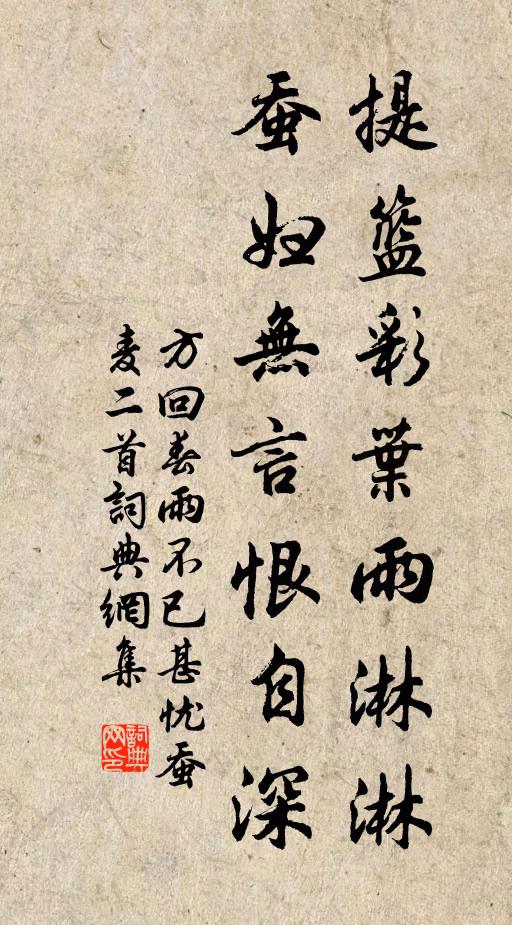 提籃彩葉雨淋淋
蚕妇無言恨自深
方回春雨不已甚忧蚕
麦二首詞典網集
詞典网印